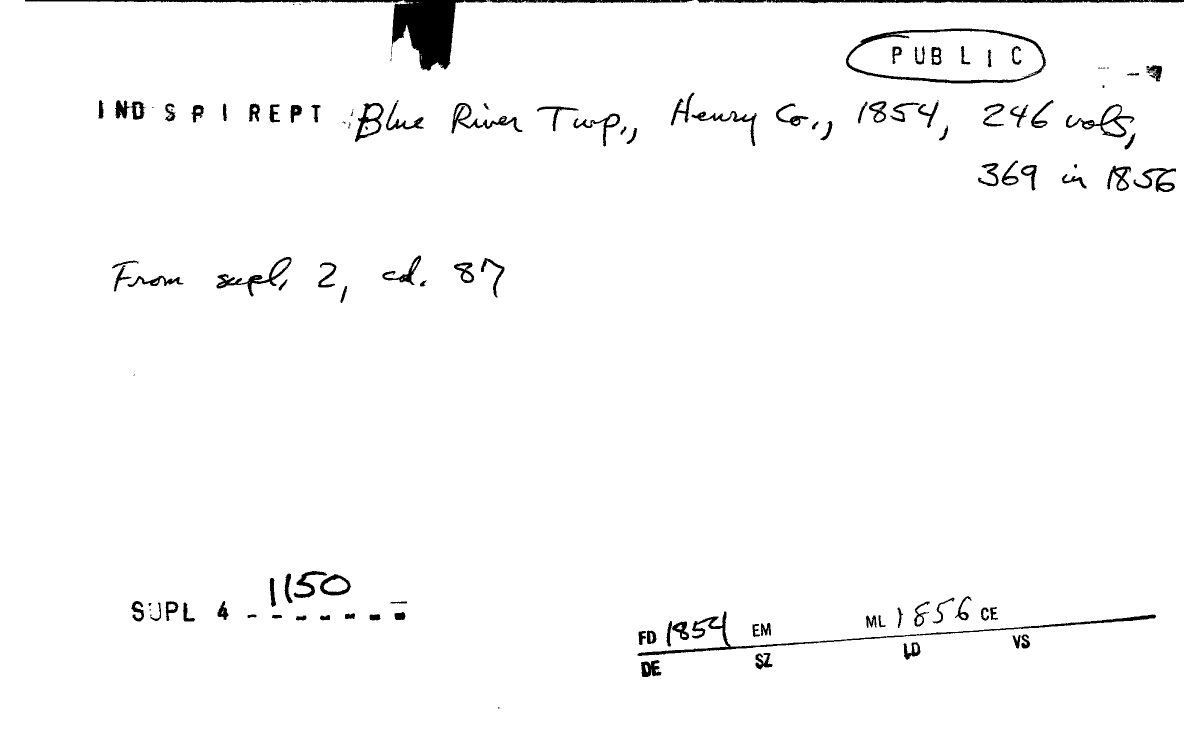 PUBLIC
IND SPIREPT Blue River Twp., Henry Co., 1854, 246 vols,
369 in 1856
From supl. 2, cd. 87
1150
SUPL 4 - - - - - - -
FD 1854 EM ML 1856 CE
DE SZ LD VS